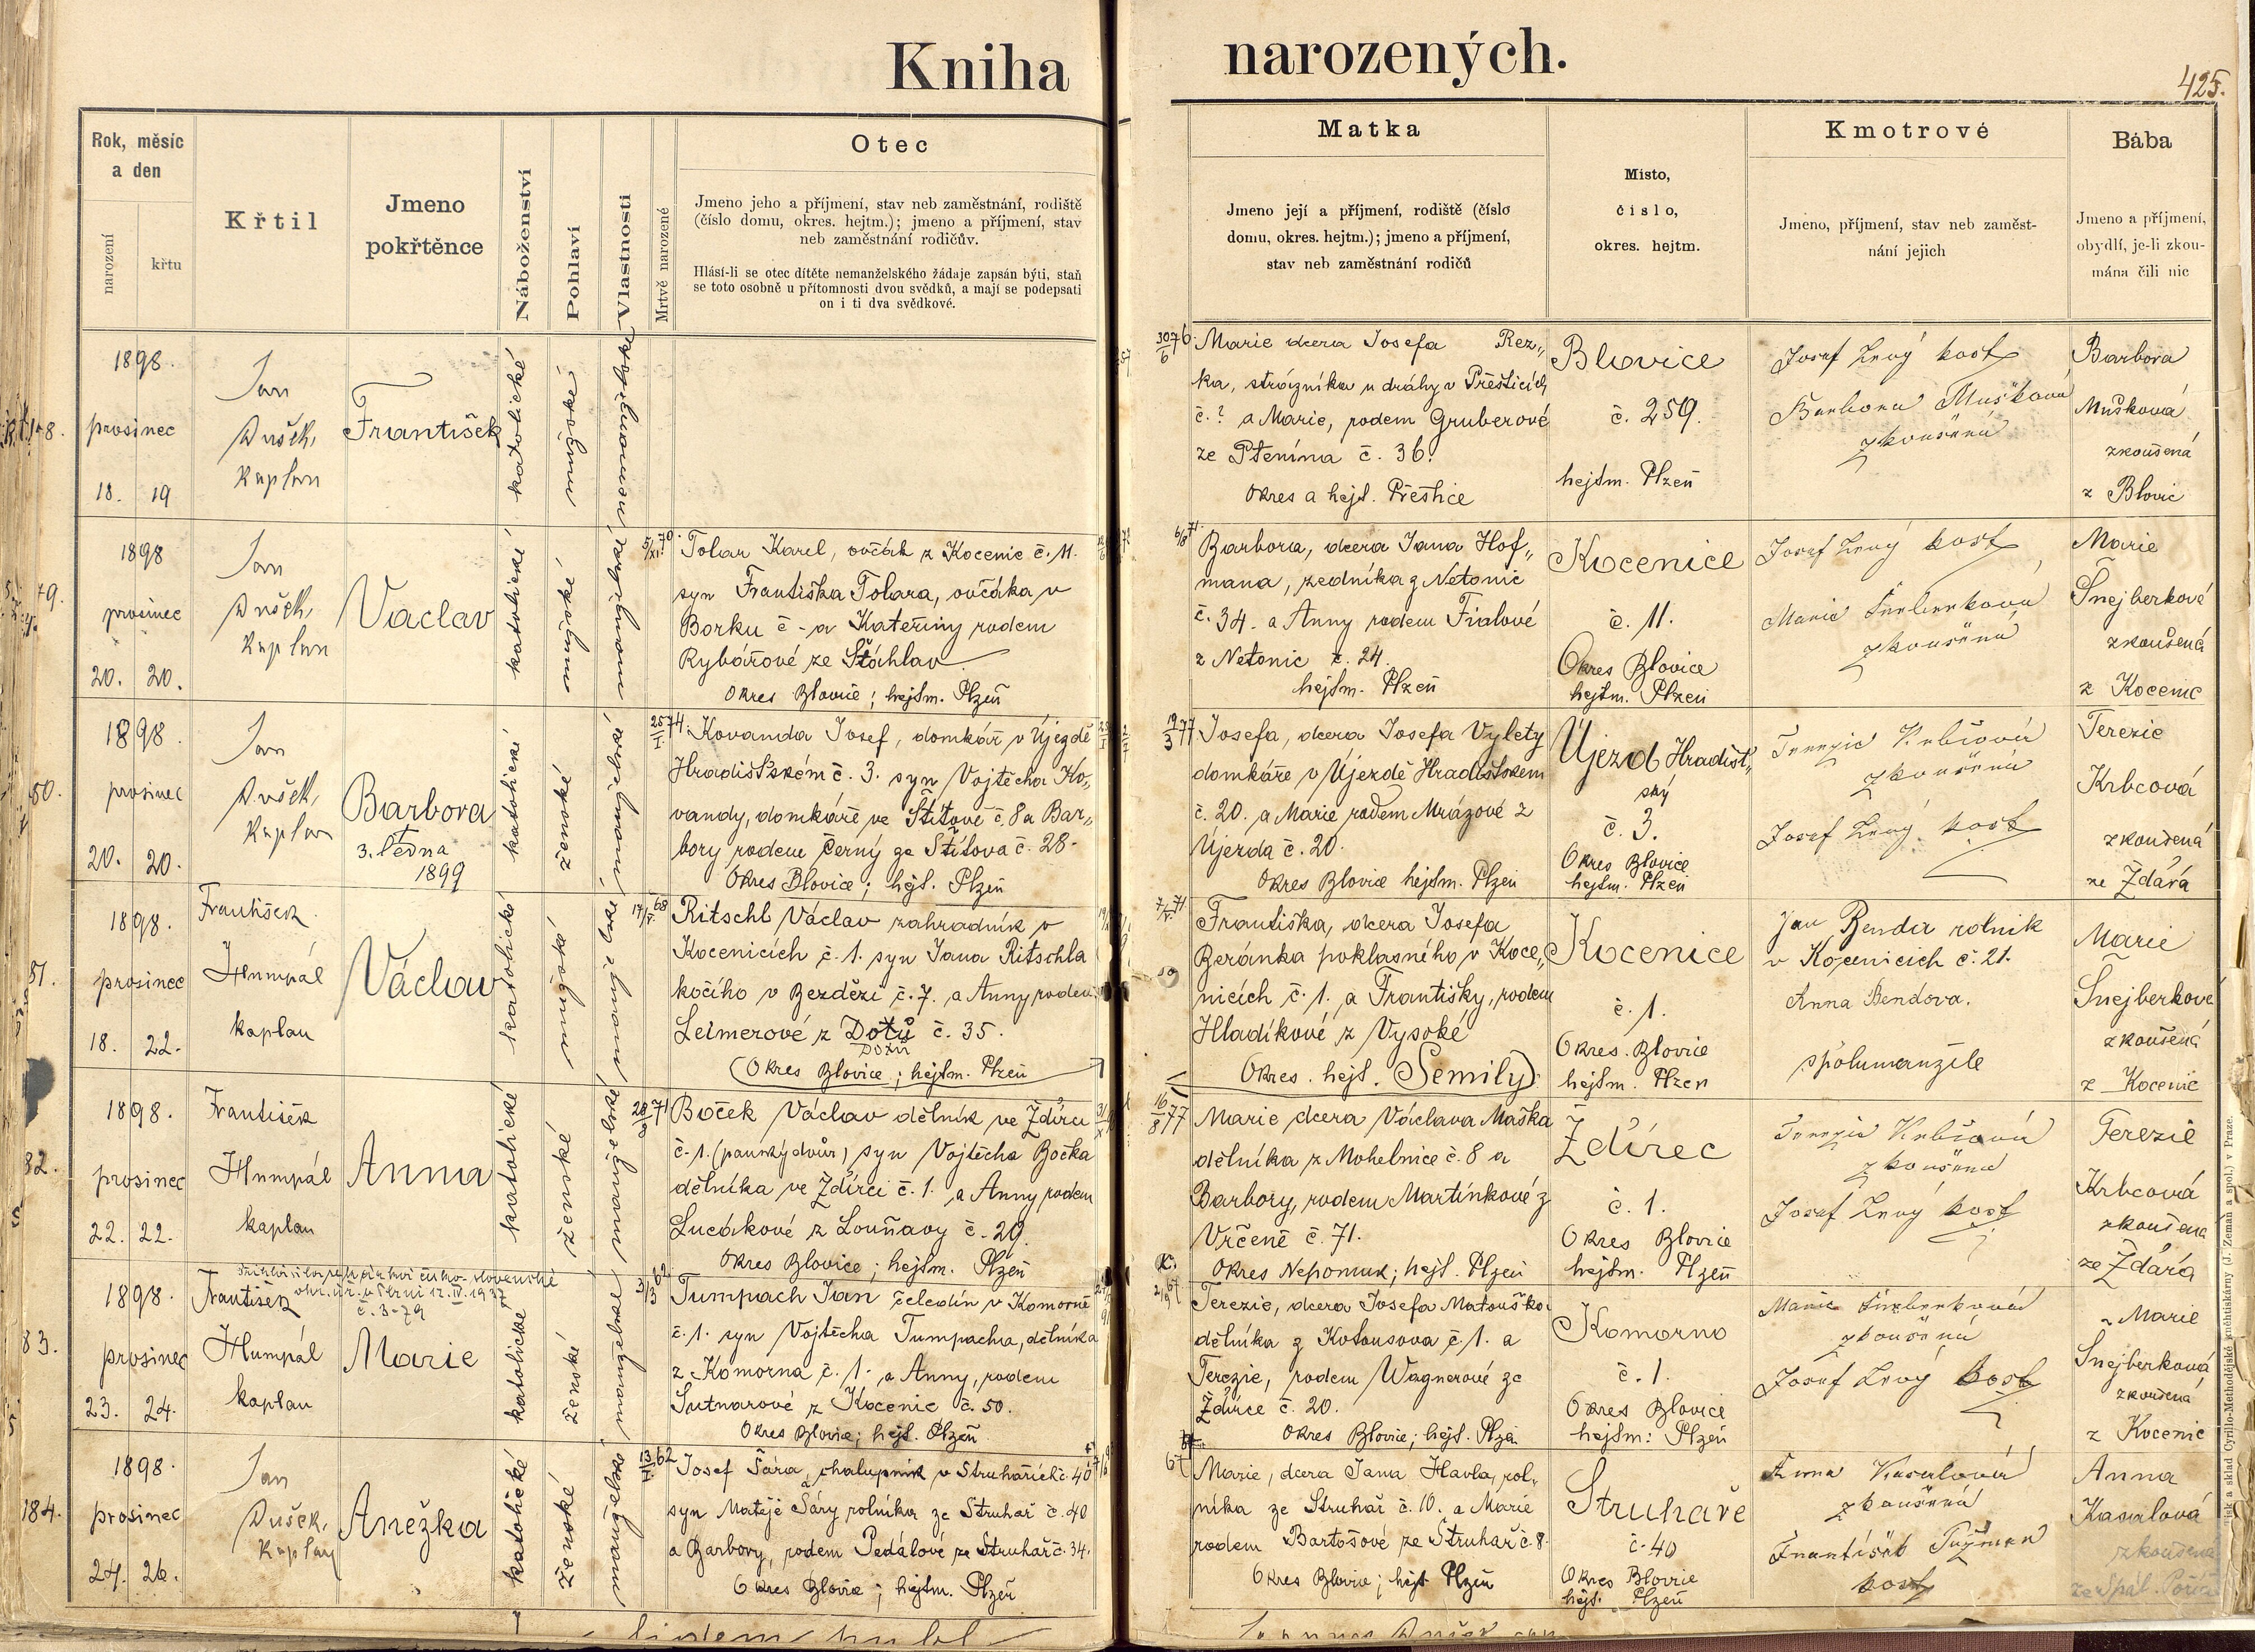 Kniha narozených.
425.
Rok, měsíc
a den
narození
křtu
Křtil
Jmeno
pokřtěnce
Náboženství
Pohlaví
Vlastnosti
Mrtvě narozené
Otec
Jmeno jeho a příjmení, stav neb zaměstnání, rodiště
(číslo domu, okres. hejtm.); jmeno a příjmení, stav
neb zaměstnání rodičův.
Hlásí-li se otec dítěte nemanželského žádaje zapsán býti, staň
se toto osobně u přítomnosti dvou svědků, a mají se podepsati
on i ti dva svědkové.
Matka
Jmeno její a příjmení, rodiště (číslo
domu, okres. hejtm.); jmeno a příjmení,
stav neb zaměstnání rodičů
Místo,
číslo,
okres. hejtm.
Kmotrové
Jmeno, příjmení, stav neb zaměst-
nání jejich
Bába
Jmeno a příjmení,
obydlí, je-li zkou-
mána čili nic
1898.
prosinec
18. 19
Jan
Dušek,
Kaplan
František
katolické
mužské
nemanželské
30/6 76
Marie dcera Josefa Rez„
ka, strážníka u dráhy v Přešticích
č. ? a Marie, rodem Gruberové
ze Ptenína č. 36.
Okres a hejt. Přeštice
Blovice
č. 259.
hejtm. Plzeň
Josef Levý kost
Barbora Mušková
zkoušená
Barbora
Mušková
zkoušená
z Blovic
79.
1898
prosinec
20. 20.
Jan
Dušek,
Kaplan
Václav
katolické
mužské
manželské
5/XI 70.
Tolar Karel, ovčák z Kocenic č. 11.
syn Františka Tolara, ovčáka v
Borku č - a Kateřiny rodem
Rybářové ze Štáhlav
Okres Blovice; hejtm. Plzeň
6/8 71.
Barbora, dcera Jana Hof„
mana, zedníka z Netonic
č. 34. a Anny rodem Fialové
z Netonic č. 24.
hejtm. Plzeň
Kocenice
č. 11.
Okres Blovice
hejtm. Plzeň
Josef Levý kost
Marie Šnejberková
zkoušená
Marie
Šnejberkové
zkoušená
z Kocenic
80.
1898
prosinec
20. 20.
Jan
Dušek,
Kaplan
Barbora
3. ledna
1899
katolické
ženské
manželské
25/I 74.
Kovanda Josef, domkář v Újezdě
Hradišťském č. 3. syn Vojtěcha Ko„
vandy, domkáře ve Štítově č. 8 a Bar„
bory rodem Černý ze Štítova č. 28.
Okres Blovice; hejt. Plzeň
19/3 77
Josefa, dcera Josefa Vylety
domkáře v Újezdě Hradišťském
č. 20. a Marie rodem Mrázové z
Újezda č. 20.
Okres Blovice hejtm. Plzeň
Újezd Hradišť„
ský
č. 3.
Okres Blovice
hejtm. Plzeň
Terezie Krbcová
zkoušená
Josef Levý kost
Terezie
Krbcová
zkoušená
ze Ždára
81.
1898.
prosinec
18. 22.
František
Humpál
kaplan
Václav
katolické
mužské
manželské
17/V. 68
Ritschl Václav zahradník v
Kocenicích č. 1. syn Jana Ritschla
kočího v Bezdězí č. 7. a Anny rodem
Leimerové z Dotů č. 35.
Okres Blovice; hejtm. Plzeň
7/V. 71
Františka, dcera Josefa
Beránka poklasného v Koce„
nicích č. 1. a Františky, rodem
Hladíkové z Vysoké
Okres. hejt. Semily)
Kocenice
č. 1.
Okres. Blovice
hejtm. Plzeň
Jan Benda rolník
v Kocenicích č. 21.
Anna Bendova.
spolumanžele
Marie
Šnejberkové
zkoušená
z Kocenic
82.
1898.
prosinec
22. 22.
František
Humpál
kaplan
Anna
katolické
ženské
manželské
Boček Václav dělník ve Ždírci
č. 1. (panský dvůr) syn Vojtěcha Bočka
dělníka ve Ždírci č. 1. a Anny rodem
Lucákové z Louňavy č. 29.
Okres Blovice; hejtm. Plzeň
16/8 77
Marie dcera Václava Maška
dělníka z Mohelnice č. 8 a
Barbory, rodem Martínkové z
Vrčeně č. 71.
Okres Nepomuk; hejt. Plzeň
Ždírec
č. 1.
Okres Blovice
hejtm. Plzeň
Terezie Krbcová
zkoušená
Josef Levý kost
Terezie
Krbcová
zkoušená
ze Ždára
83.
1898.
prosinec
23. 24.
František
Humpál
kaplan
Marie
katolické
ženské
manželské
3/3 62
Tumpach Jan čeledín v Komorně
č. 1. syn Vojtěcha Tumpacha, dělníka
z Komorna č. 1. a Anny, rodem
Sutnarové z Kocenic č. 50.
Okres Blovice; hejt. Plzeň
Terezie, dcera Josefa Matouška
dělníka z Kotousova č. 1. a
Terezie, rodem Wagnerové ze
Ždírce č. 20.
Okres Blovice; hejt. Plzeň
Komorno
č. 1.
Okres Blovice
hejtm: Plzeň
Marie Šnejberková
zkoušená
Josef Levý kost
Marie
Šnejberková
zkoušená
z Kocenic
184.
1898.
prosinec
24. 26.
Jan
Dušek,
Kaplan
Anežka
katolické
ženské
manželské
Josef Šára, chalupník v Struhařích č. 40
syn Matěje Šáry rolníka ze Struhař č. 40
a Barbory, rodem Pedálové ze Struhař č. 34.
Okres Blovice; hejtm. Plzeň
Marie, dcera Jana Havla, rol„
níka ze Struhař č. 10. a Marie
rodem Bartošové ze Struhař č. 8.
Okres Blovice; hejt Plzeň
Struhaře
č. 40
Okres Blovice
hejt. Plzeň
Anna Kasalová
zkoušená
František Tužman
kost
Anna
Kasalová
zkoušená
ze Spál. Poříčí